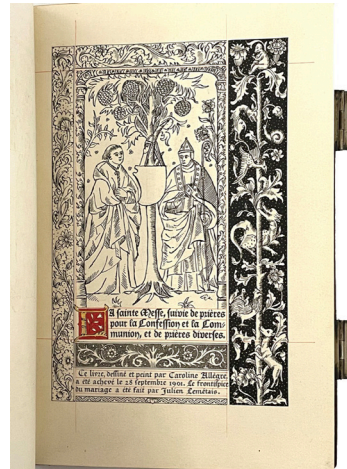 La sainte Messe, suivie de prières
pour la Confession et la Com-
munion, et de prières diverses.
Ce livre, dessiné et peint par Caroline Allègre,
a été achevé le 28 septembre 1901. Le frontispice
du mariage a été fait par Julien Lemétais.